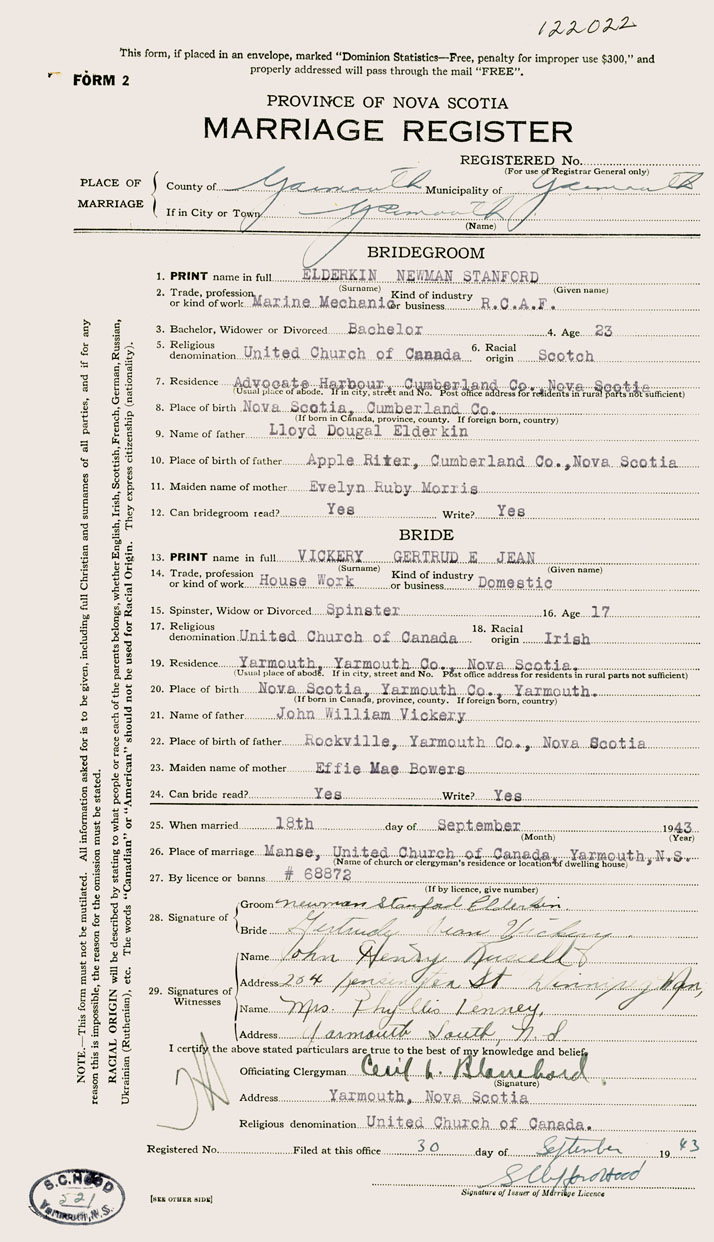 122022
This form, if placed in an envelope, marked "Dominion Statistics—Free, penalty for improper use $300," and
properly addressed will pass through the mail "FREE".
FORM 2
PROVINCE OF NOVA SCOTIA
MARRIAGE REGISTER
REGISTERED No.
(For use of Registrar General only)
PLACE OF MARRIAGE
County of Yarmouth Municipality of Yarmouth
If in City or Town Yarmouth
(Name)
BRIDEGROOM
1. PRINT name in full ELDERKIN NEWMAN STANFORD
(Surname) (Given name)
2. Trade, profession or kind of work Marine Mechanic Kind of industry or business R.C.A.F.
3. Bachelor, Widower or Divorced Bachelor 4. Age 23
5. Religious denomination United Church of Canada 6. Racial origin Scotch
7. Residence Advocate Harbour, Cumberland Co., Nova Scotia
(Usual place of abode. If in city, street and No. Post office address for residents in rural parts not sufficient)
8. Place of birth Nova Scotia, Cumberland Co.
(If born in Canada, province, county. If foreign born, country)
9. Name of father Lloyd Dougal Elderkin
10. Place of birth of father Apple River, Cumberland Co., Nova Scotia
11. Maiden name of mother Evelyn Ruby Morris
12. Can bridegroom read? Yes Write? Yes
BRIDE
13. PRINT name in full VICKERY GERTRUD E JEAN
(Surname) (Given name)
14. Trade, profession or kind of work House Work Kind of industry or business Domestic
15. Spinster, Widow or Divorced Spinster 16. Age 17
17. Religious denomination United Church of Canada 18. Racial origin Irish
19. Residence Yarmouth, Yarmouth Co., Nova Scotia.
(Usual place of abode. If in city, street and No. Post office address for residents in rural parts not sufficient)
20. Place of birth Nova Scotia, Yarmouth Co., Yarmouth.
(If born in Canada, province, county. If foreign born, country)
21. Name of father John William Vickery
22. Place of birth of father Rockville, Yarmouth Co., Nova Scotia
23. Maiden name of mother Effie Mae Bowers
24. Can bride read? Yes Write? Yes
25. When married 18th day of September 1943
(Month) (Year)
26. Place of marriage Manse, United Church of Canada, Yarmouth, N.S.
(Name of church or clergyman's residence or location of dwelling house)
27. By licence or banns # 68872
(If by licence, give number)
28. Signature of
Groom Newman Stanford Elderkin
Bride Gertrude Jean Vickery
29. Signatures of Witnesses
Name John Henry Russell
Address 204 Kensington St Winnipeg Man,
Name Mrs. Phyllis Tenney,
Address Yarmouth South, N.S
I certify the above stated particulars are true to the best of my knowledge and belief.
Officiating Clergyman Cecil L. Blanchard.
(Signature)
Address Yarmouth, Nova Scotia
Religious denomination United Church of Canada.
Registered No. Filed at this office 30 day of September 1943
S Clifford Hood
Signature of Issuer of Marriage Licence
[SEE OTHER SIDE]
S.C. HOOD
521
Yarmouth, N.S.
NOTE.—This form must not be mutilated. All information asked for is to be given, including full Christian and surnames of all parties, and if for any
reason this is impossible, the reason for the omission must be stated.
RACIAL ORIGIN will be described by stating to what people or race each of the parents belongs, whether English, Irish, Scottish, French, German, Russian,
Ukrainian (Ruthenian), etc. The words "Canadian" or "American" should not be used for Racial Origin. They express citizenship (nationality).